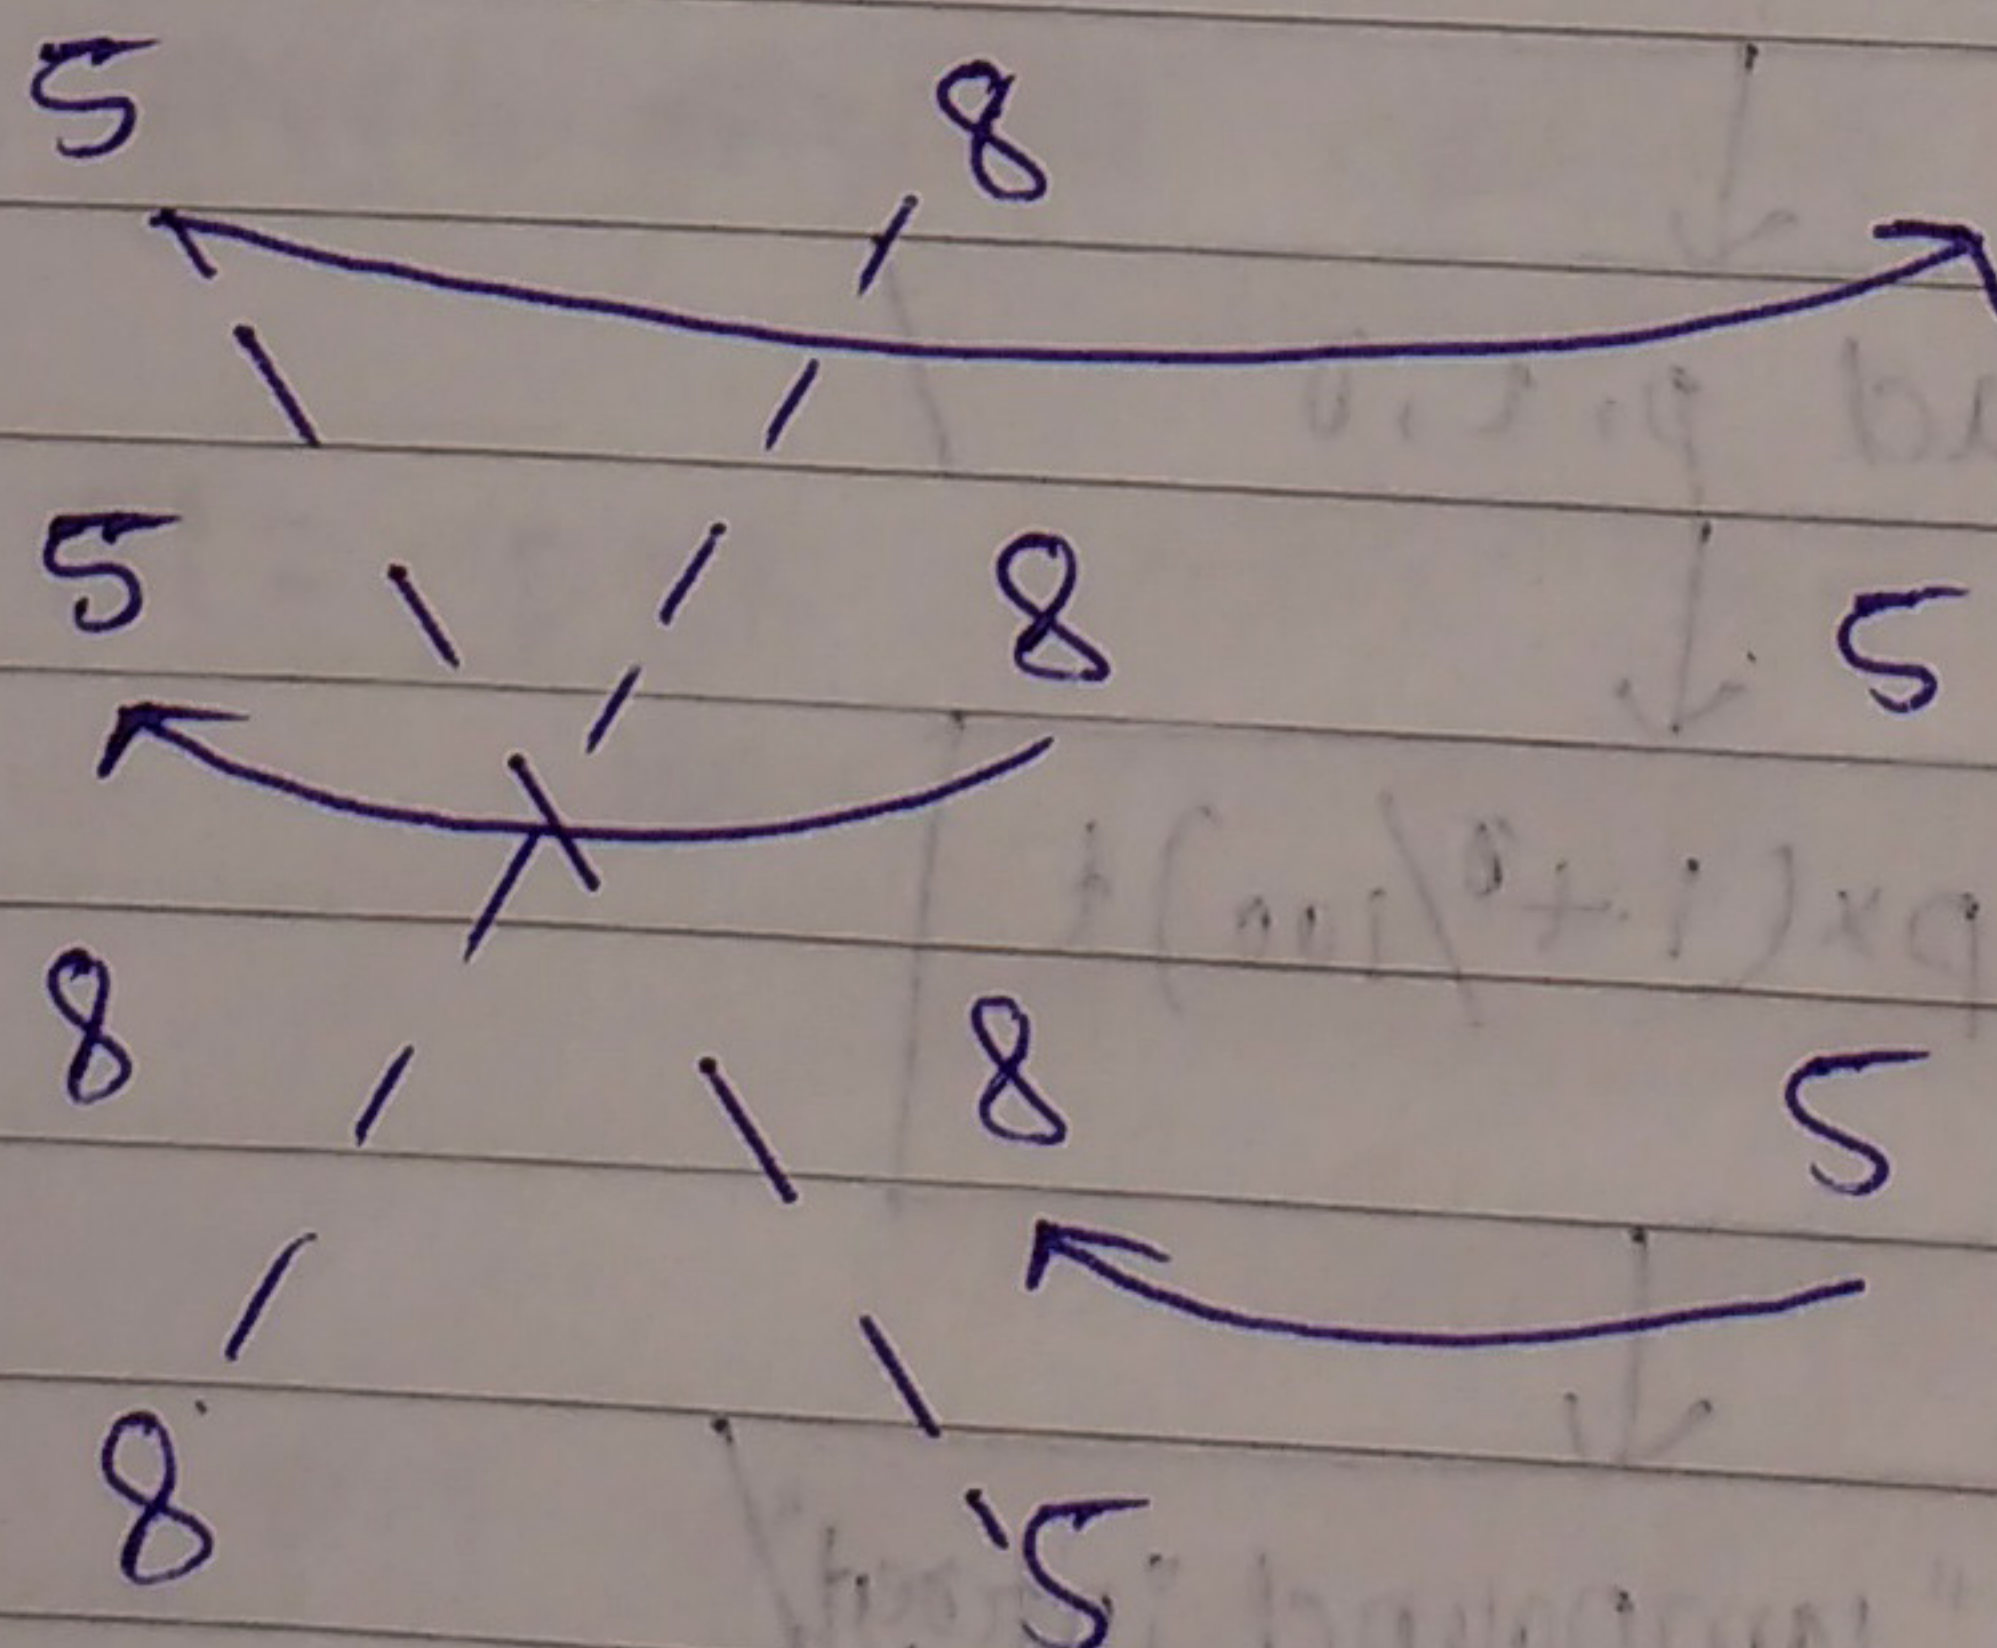 5 8
5 8 5
8 8 5
8 5